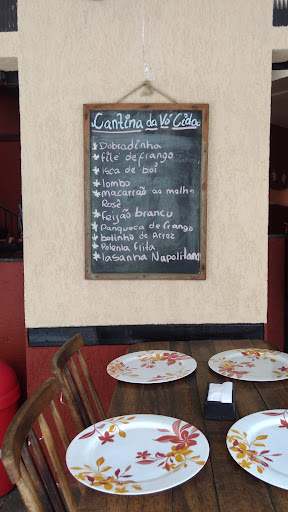 Cantina da Vó Cida
Dobradinha
filé de frango
isca de boi
lombo
macarrão ao molho
Rosê
feijão branco
Panqueca de frango
bolinho de Arroz
Polenta frita
lasanha Napolitana